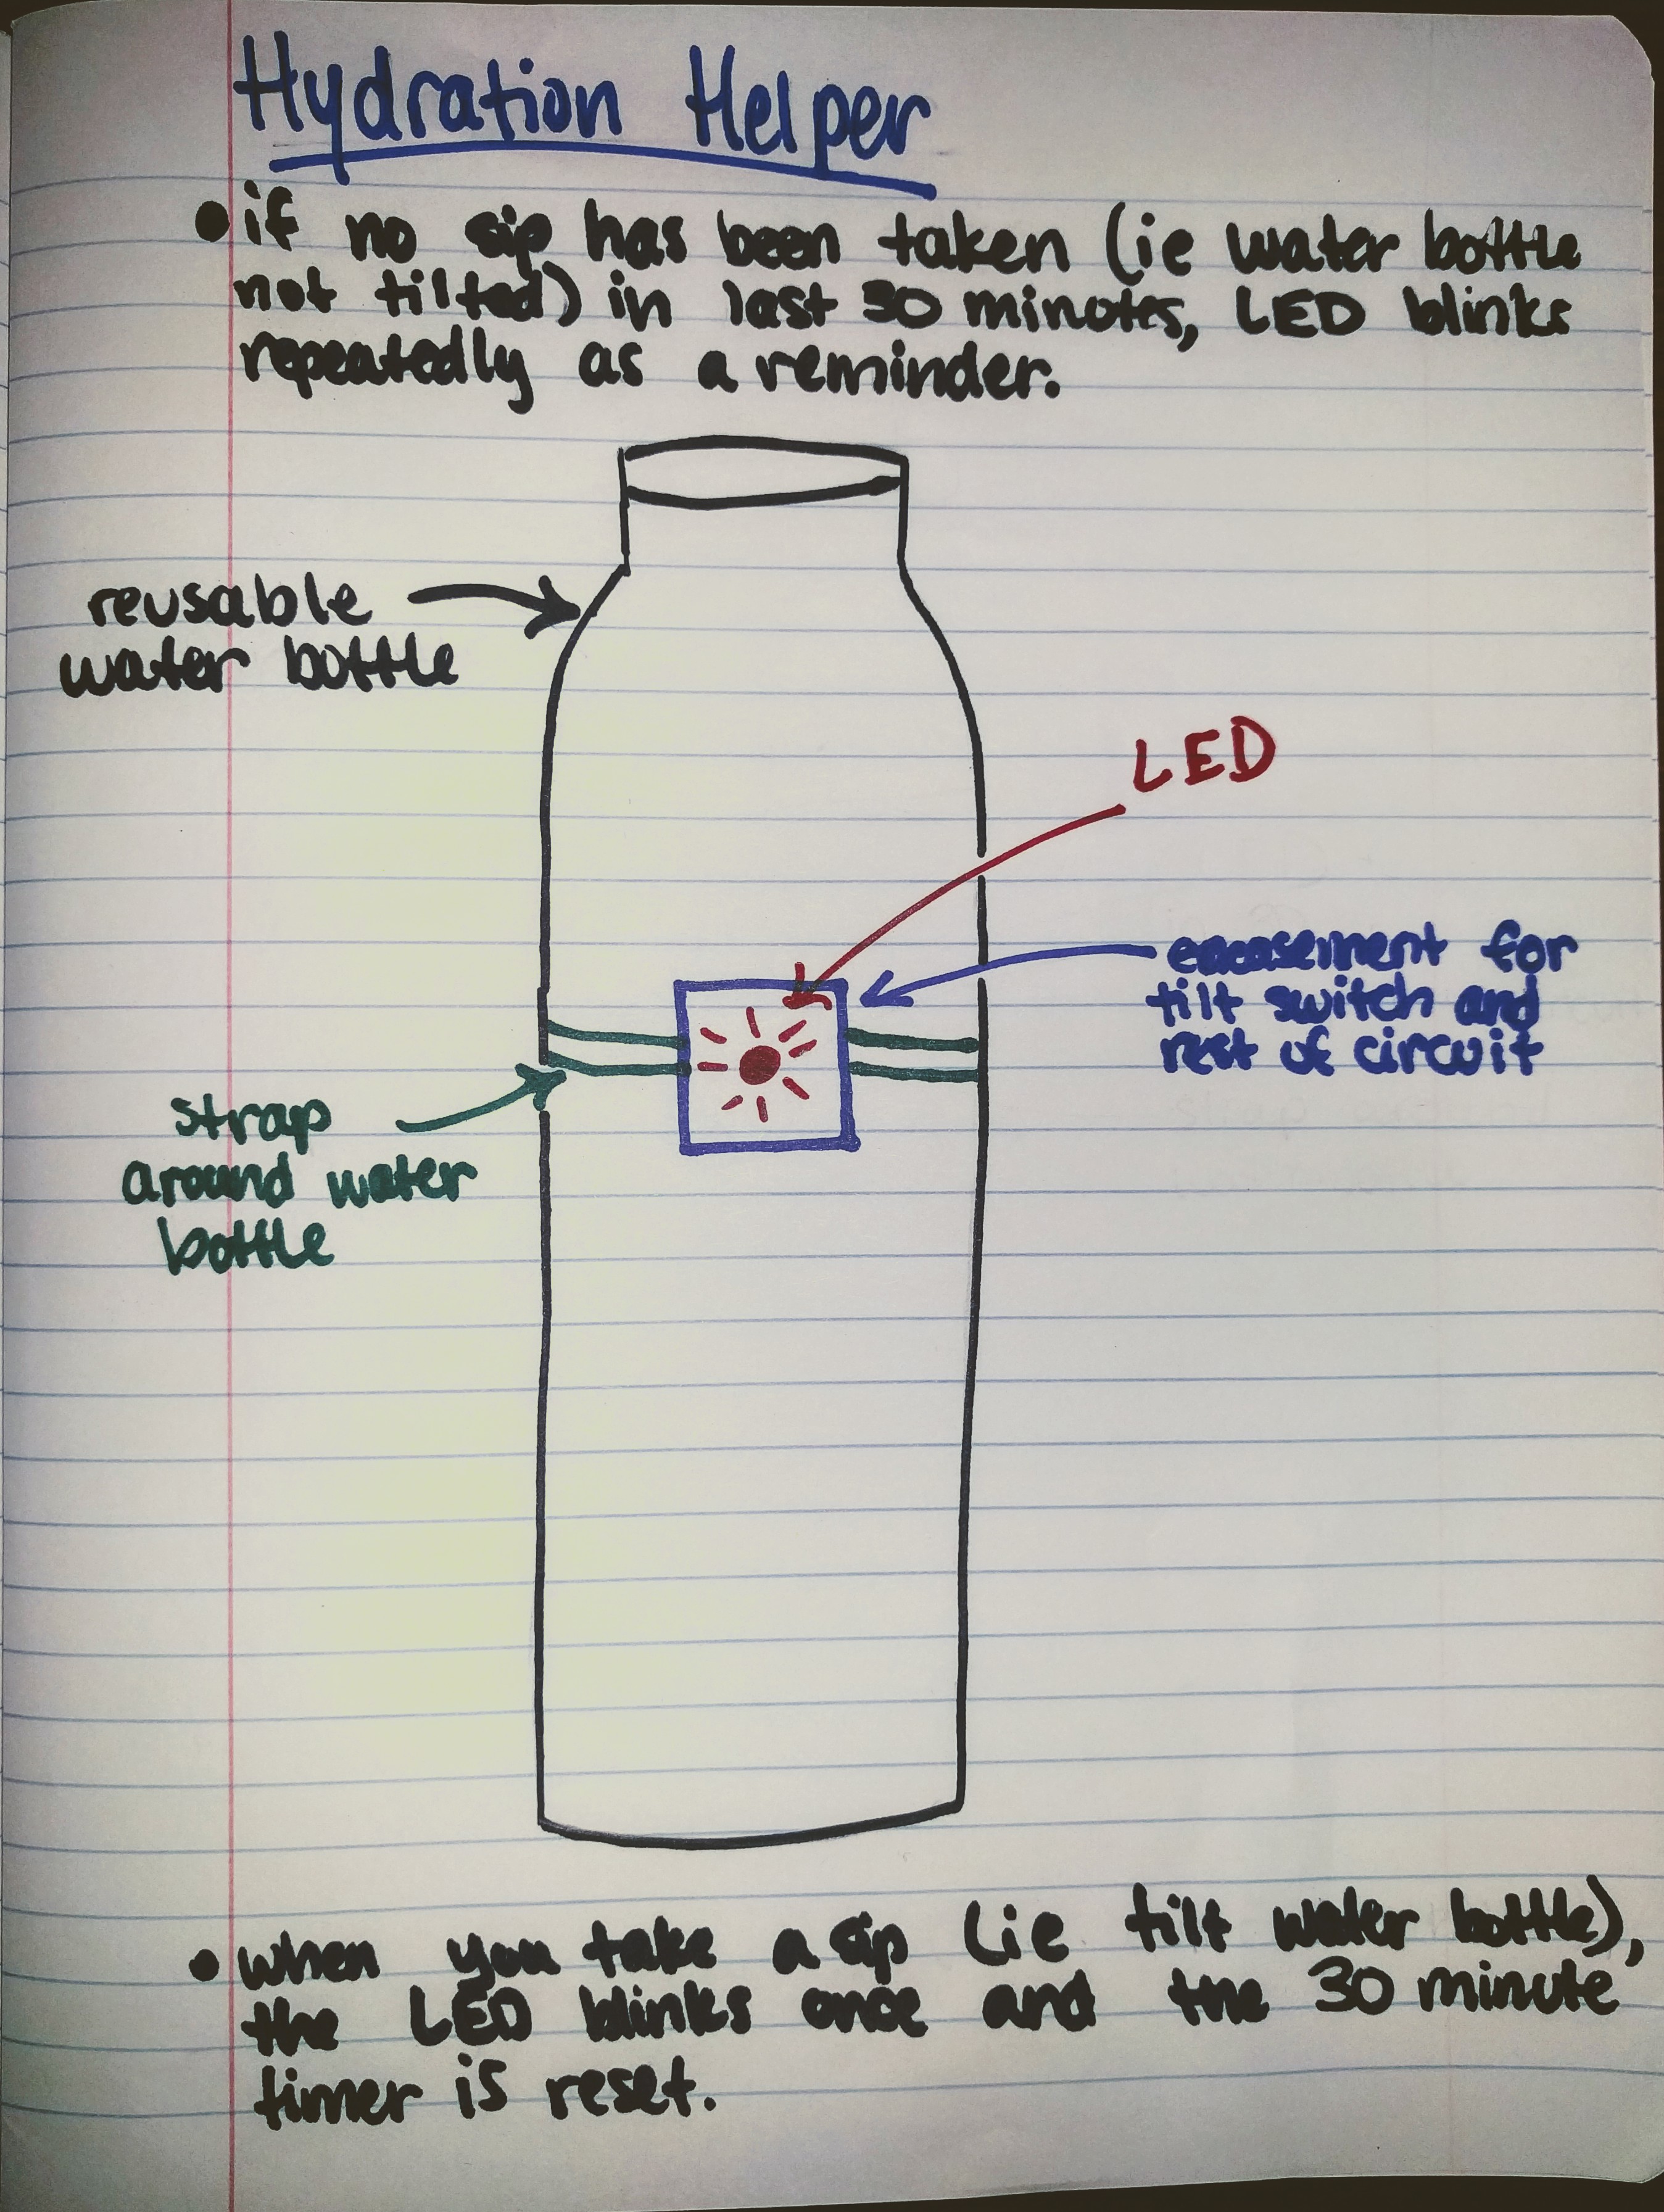 Hydration Helper
• if no sip has been taken (ie water bottle
not tilted) in last 30 minutes, LED blinks
repeatedly as a reminder.
reusable
water bottle
LED
encasement for
tilt switch and
rest of circuit
strap
around water
bottle
• when you take a sip (ie tilt water bottle),
the LED blinks once and the 30 minute
timer is reset.